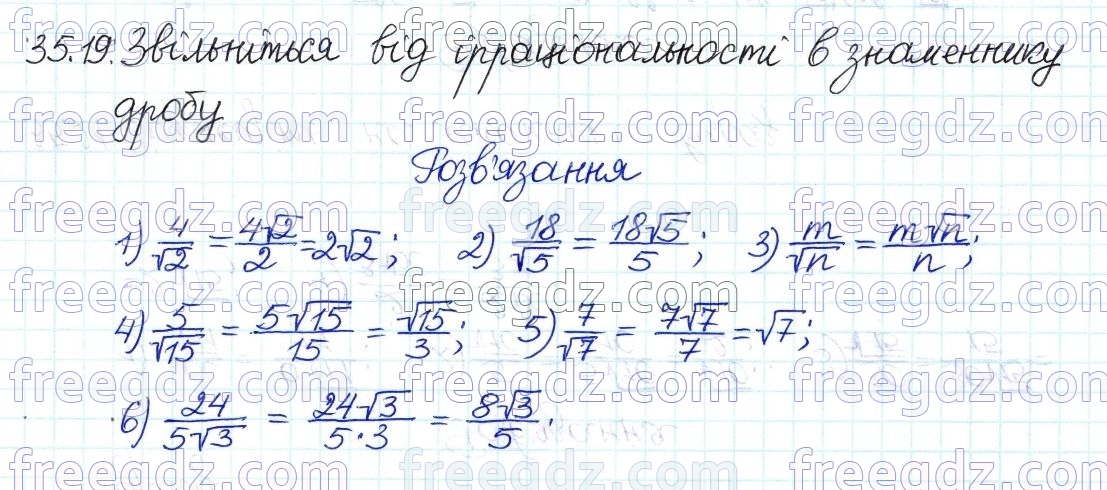 35.19. Звільниться від ірраціональності в знаменнику
дробу
Розв'язання
1) 4/√2 = 4√2/2 = 2√2; 2) 18/√5 = 18√5/5; 3) m/√n = m√n/n;
4) 5/√15 = 5√15/15 = √15/3; 5) 7/√7 = 7√7/7 = √7;
6) 24/5√3 = 24√3/5·3 = 8√3/5.
freegdz.com